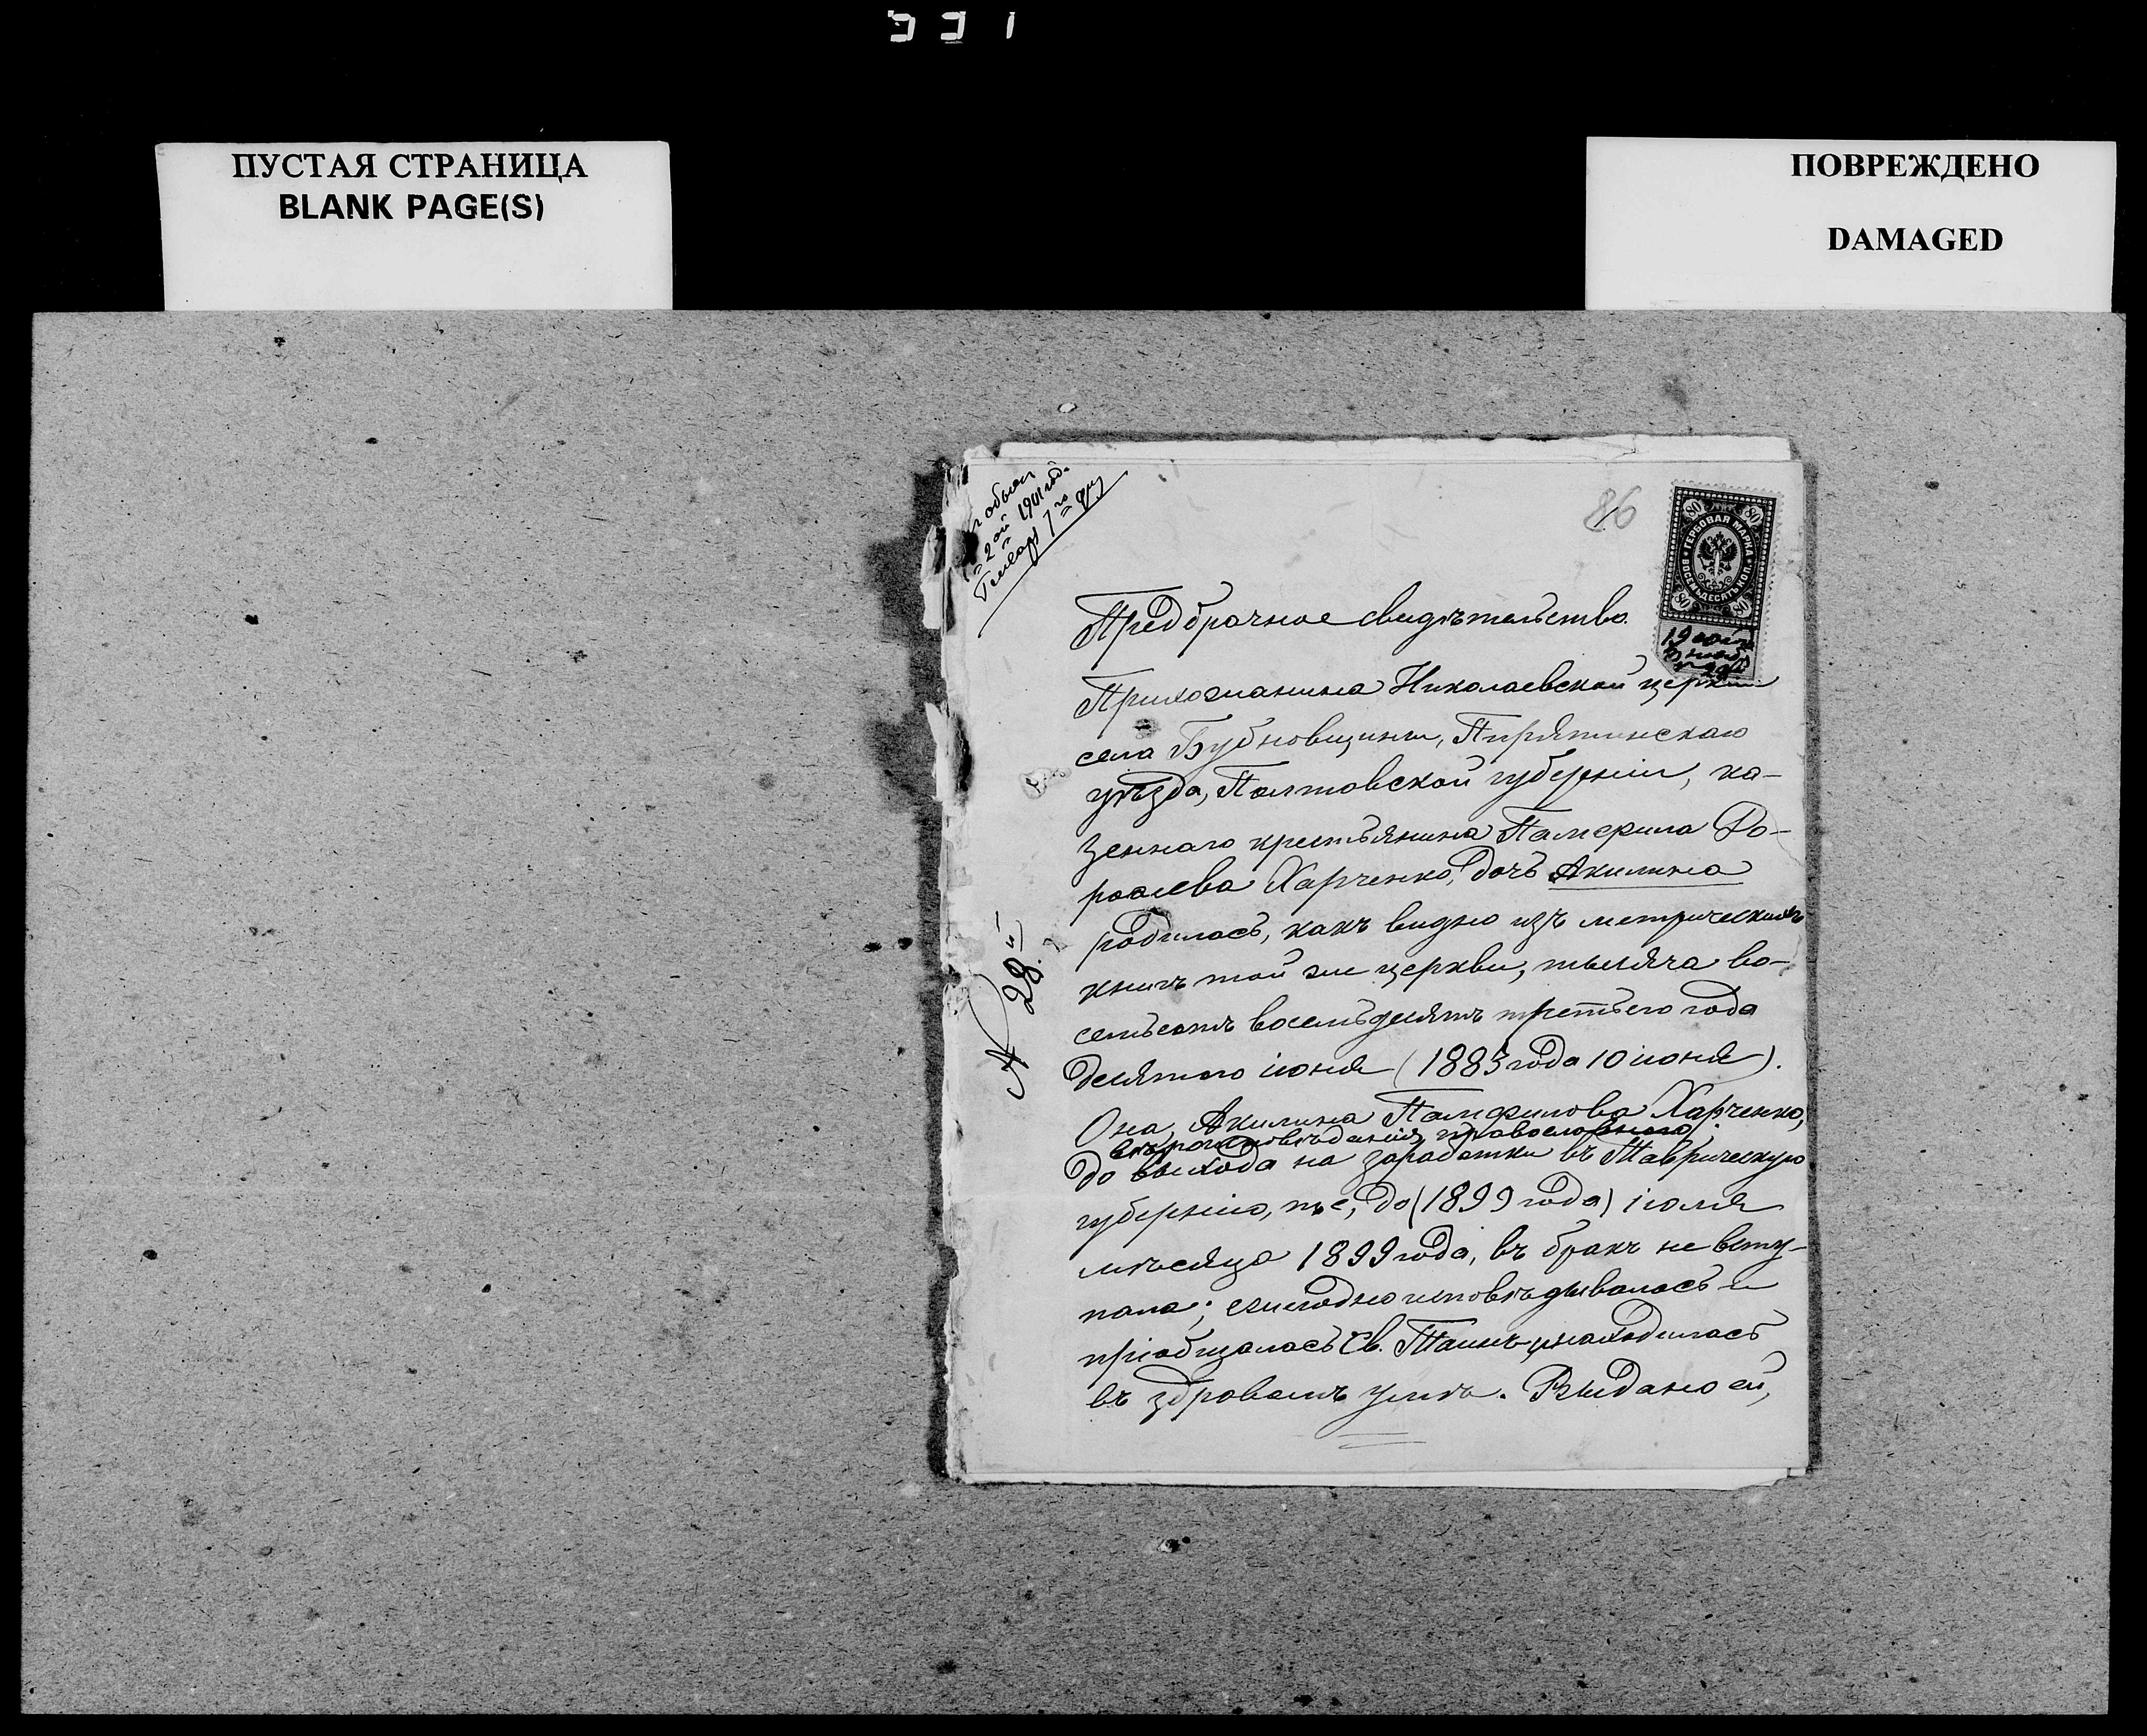 ПУСТАЯ СТРАНИЦА
BLANK PAGE(S)
ПОВРЕЖДЕНО
DAMAGED
2ой 1901 год.
Генваря 7го дня
86
80 80
ГЕРБОВАЯ МАРКА
ВОСЕМЬДЕСЯТЪ КОП.
80 80
Предбрачное свидѣтельство.
Прихожанина Николаевской церкви
села Бубновщины, Пирятинскаго
уѣзда, Полтовской губерніи, ка-
зеннаго крестьянина Памфила До-
рофеева Харченко, дочь Акилина
родилась, какъ видно изъ метрическихъ
книгъ той же церкви, тысяча во-
семьсотъ восемьдесятъ третьего года
десятого іюня (1883 года 10 іюня).
Она, Акилина Памфилова Харченко,
вѣроисповѣданія православного,
до выхода на заработки въ Таврическую
губернію, т. е, до (1899 года) іюля
мѣсяца 1899 года, въ бракъ не всту-
пала; ежегодно исповѣдывалась и
пріобщалась Св. Таинъ, находилась
въ здровомъ умѣ. Выдано ей,
№ 28й